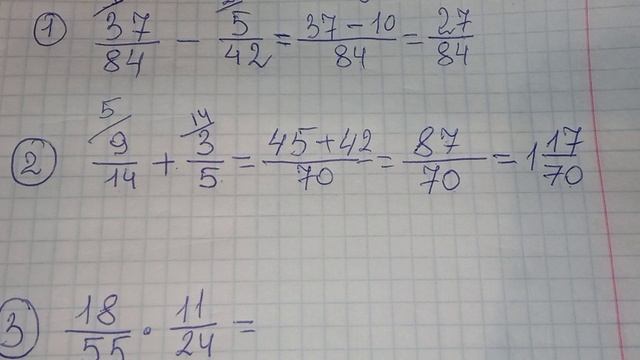 1) 37/84 - 5/42 = 37-10/84 = 27/84
2) 5/ 9/14 + 14/ 3/5 = 45+42/70 = 87/70 = 1 17/70
3) 18/55 · 11/24 =